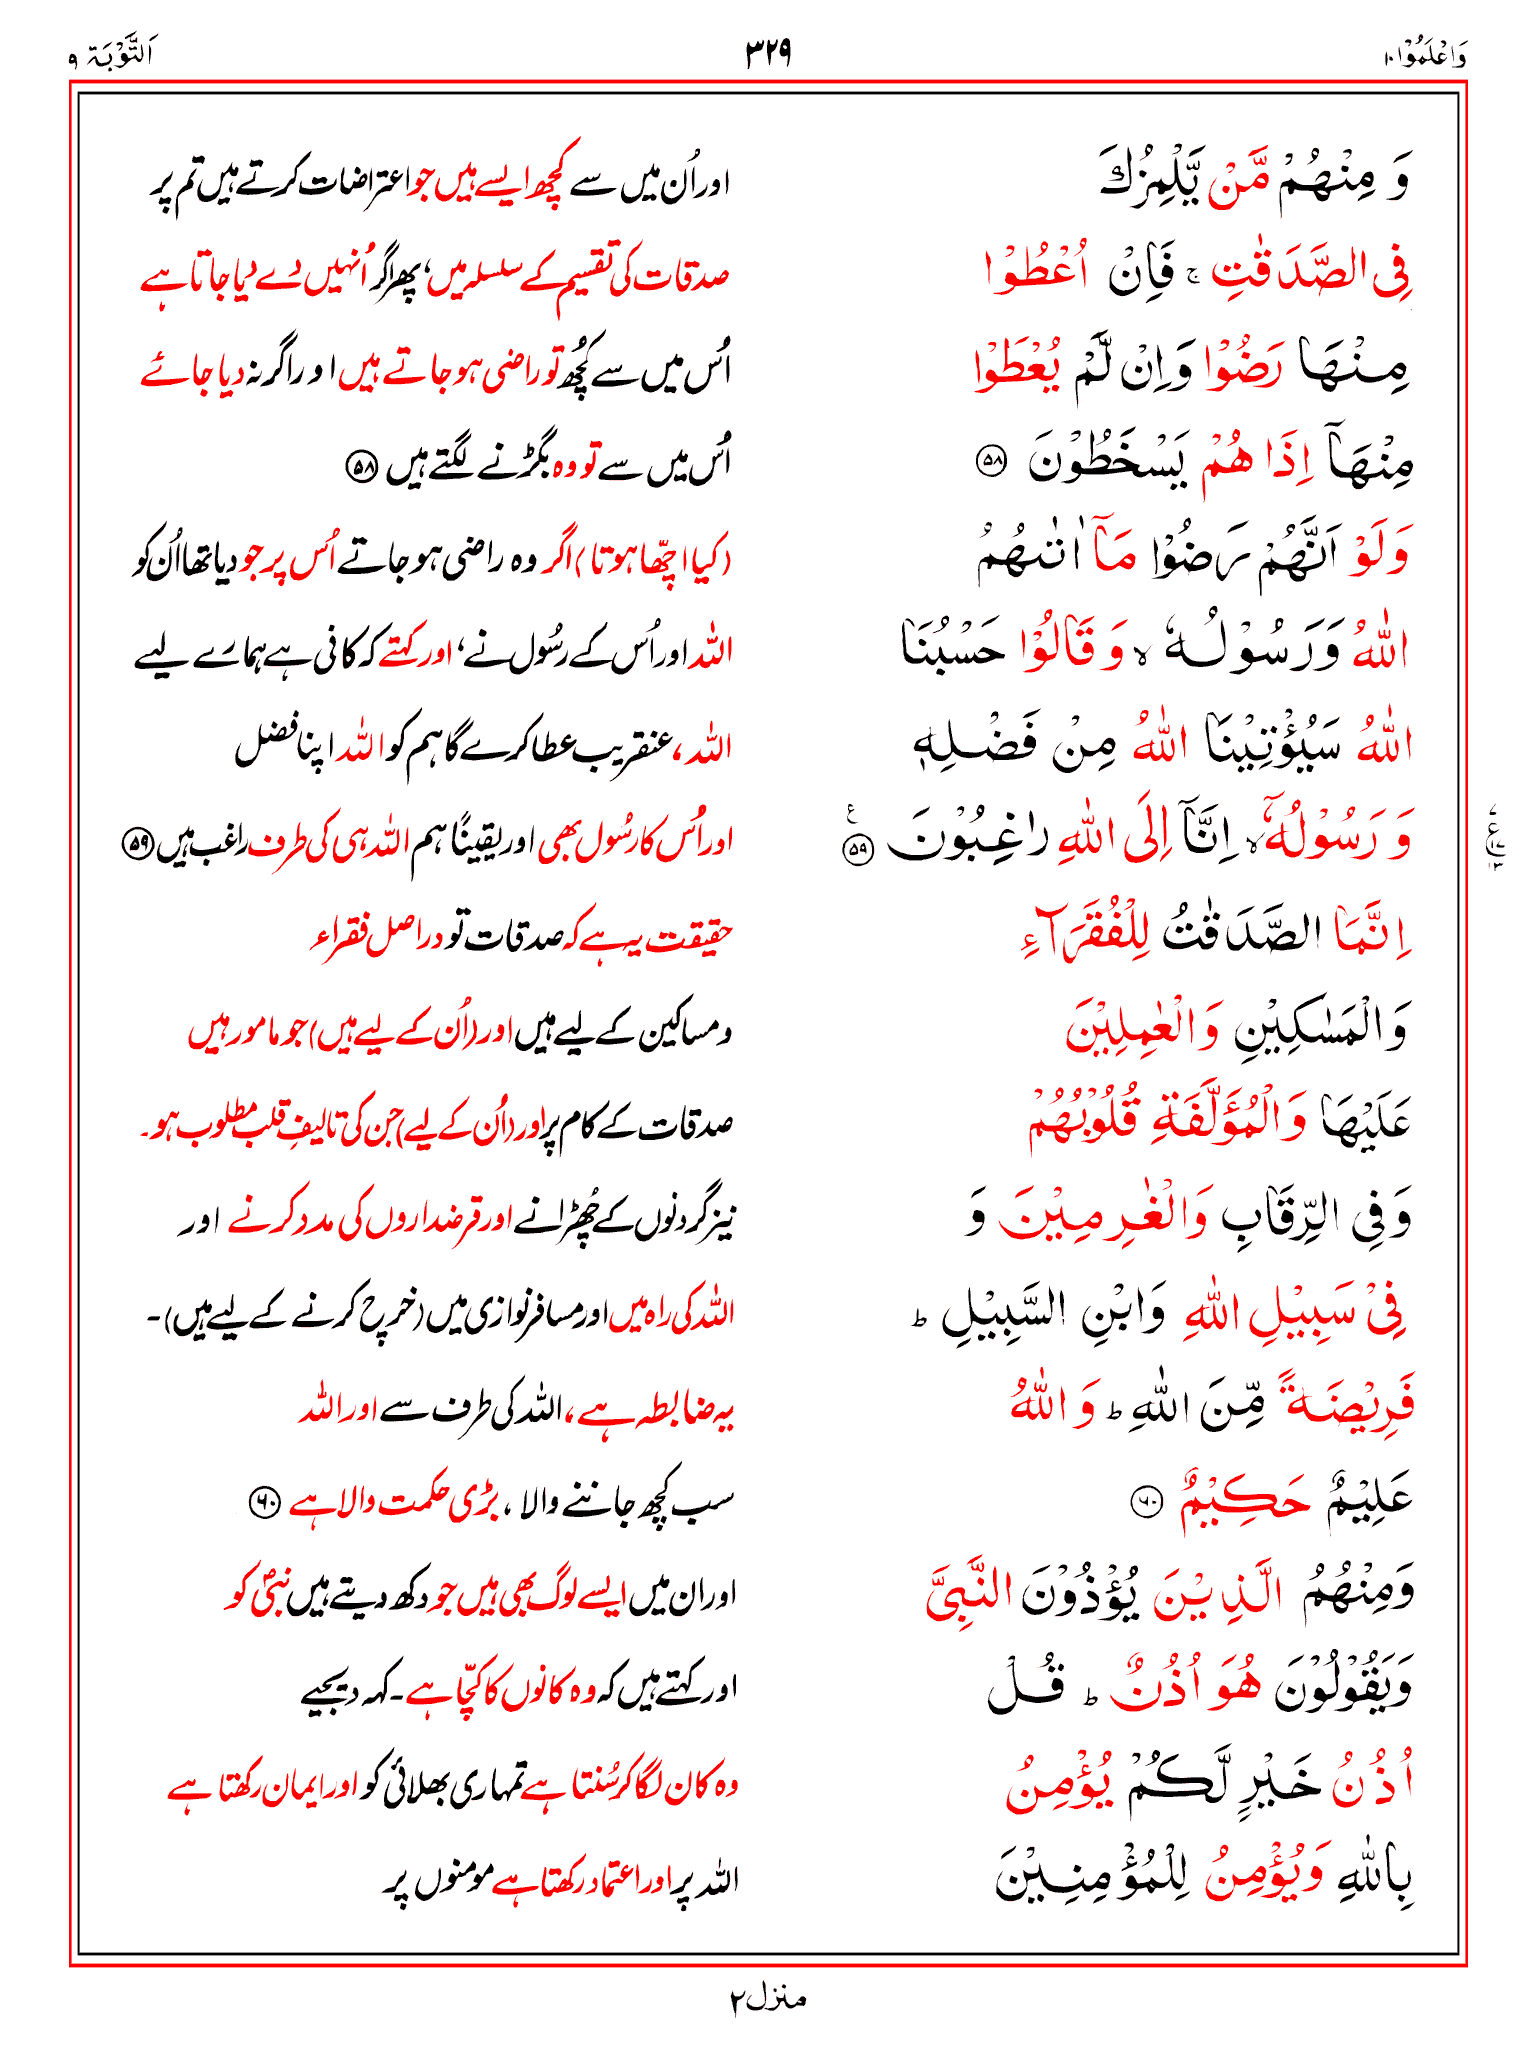 وَاعْلَمُوْا ۱۰
۳۲۹
اَلتَّوْبَۃ ۹
وَ مِنْهُمْ مَّنْ یَّلْمِزُكَ اور اُن میں سے کچھ ایسے ہیں جو اعتراضات کرتے ہیں تم پر
فِی الصَّدَقٰتِ ۚ فَاِنْ اُعْطُوْا صدقات کی تقسیم کے سلسلہ میں، پھر اگر اُنہیں دے دیا جاتا ہے
مِنْهَا رَضُوْا وَاِنْ لَّمْ یُعْطَوْا اُس میں سے کچُھ تو راضی ہو جاتے ہیں اور اگر نہ دیا جائے
مِنْهَاۤ اِذَا هُمْ یَسْخَطُوْنَ ۵۸ اُس میں سے تو وہ بگڑنے لگتے ہیں ۵۸
وَلَوْ اَنَّهُمْ رَضُوْا مَاۤ اٰتٰىهُمُ (کیا اچّھا ہوتا) اگر وہ راضی ہو جاتے اُس پر جو دیا تھا اُن کو
اللّٰهُ وَرَسُوْلُهٗ ۙ وَقَالُوْا حَسْبُنَا اللہ اور اُس کے رسُول نے، اور کہتے کہ کافی ہے ہمارے لیے
اللّٰهُ سَیُؤْتِیْنَا اللّٰهُ مِنْ فَضْلِهٖ اللہ، عنقریب عطا کرے گا ہم کو اللہ اپنا فضل
وَ رَسُوْلُهٗۤ ۙ اِنَّاۤ اِلَى اللّٰهِ رٰغِبُوْنَ ۵۹ ع اور اُس کا رسُول بھی اور یقینًا ہم اللہ ہی کی طرف راغب ہیں ۵۹
اِنَّمَا الصَّدَقٰتُ لِلْفُقَرَآءِ حقیقت یہ ہے کہ صدقات تو دراصل فقراء
وَالْمَسٰكِیْنِ وَالْعٰمِلِیْنَ و مساکین کے لیے ہیں اور (اُن کے لیے ہیں) جو مامور ہیں
عَلَیْهَا وَالْمُؤَلَّفَةِ قُلُوْبُهُمْ صدقات کے کام پر اور (اُن کے لیے) جن کی تالیفِ قلب مطلوب ہو۔
وَفِی الرِّقَابِ وَالْغٰرِمِیْنَ وَ نیز گردنوں کے چھُڑانے اور قرضداروں کی مدد کرنے اور
فِیْ سَبِیْلِ اللّٰهِ وَابْنِ السَّبِیْلِ ؕ اللہ کی راہ میں اور مسافر نوازی میں (خرچ کرنے کے لیے ہیں)۔
فَرِیْضَةً مِّنَ اللّٰهِ ؕ وَاللّٰهُ یہ ضابطہ ہے، اللہ کی طرف سے اور اللہ
عَلِیْمٌ حَكِیْمٌ ۶۰ سب کچھ جاننے والا، بڑی حکمت والا ہے ۶۰
وَمِنْهُمُ الَّذِیْنَ یُؤْذُوْنَ النَّبِیَّ اور ان میں ایسے لوگ بھی ہیں جو دکھ دیتے ہیں نبیؐ کو
وَیَقُوْلُوْنَ هُوَ اُذُنٌ ؕ قُلْ اور کہتے ہیں کہ وہ کانوں کا کچّا ہے۔ کہہ دیجیے
اُذُنُ خَیْرٍ لَّكُمْ یُؤْمِنُ وہ کان لگا کر سُنتا ہے تمہاری بھلائی کو اور ایمان رکھتا ہے
بِاللّٰهِ وَیُؤْمِنُ لِلْمُؤْمِنِیْنَ اللہ پر اور اعتماد رکھتا ہے مومنوں پر
منزل ۲